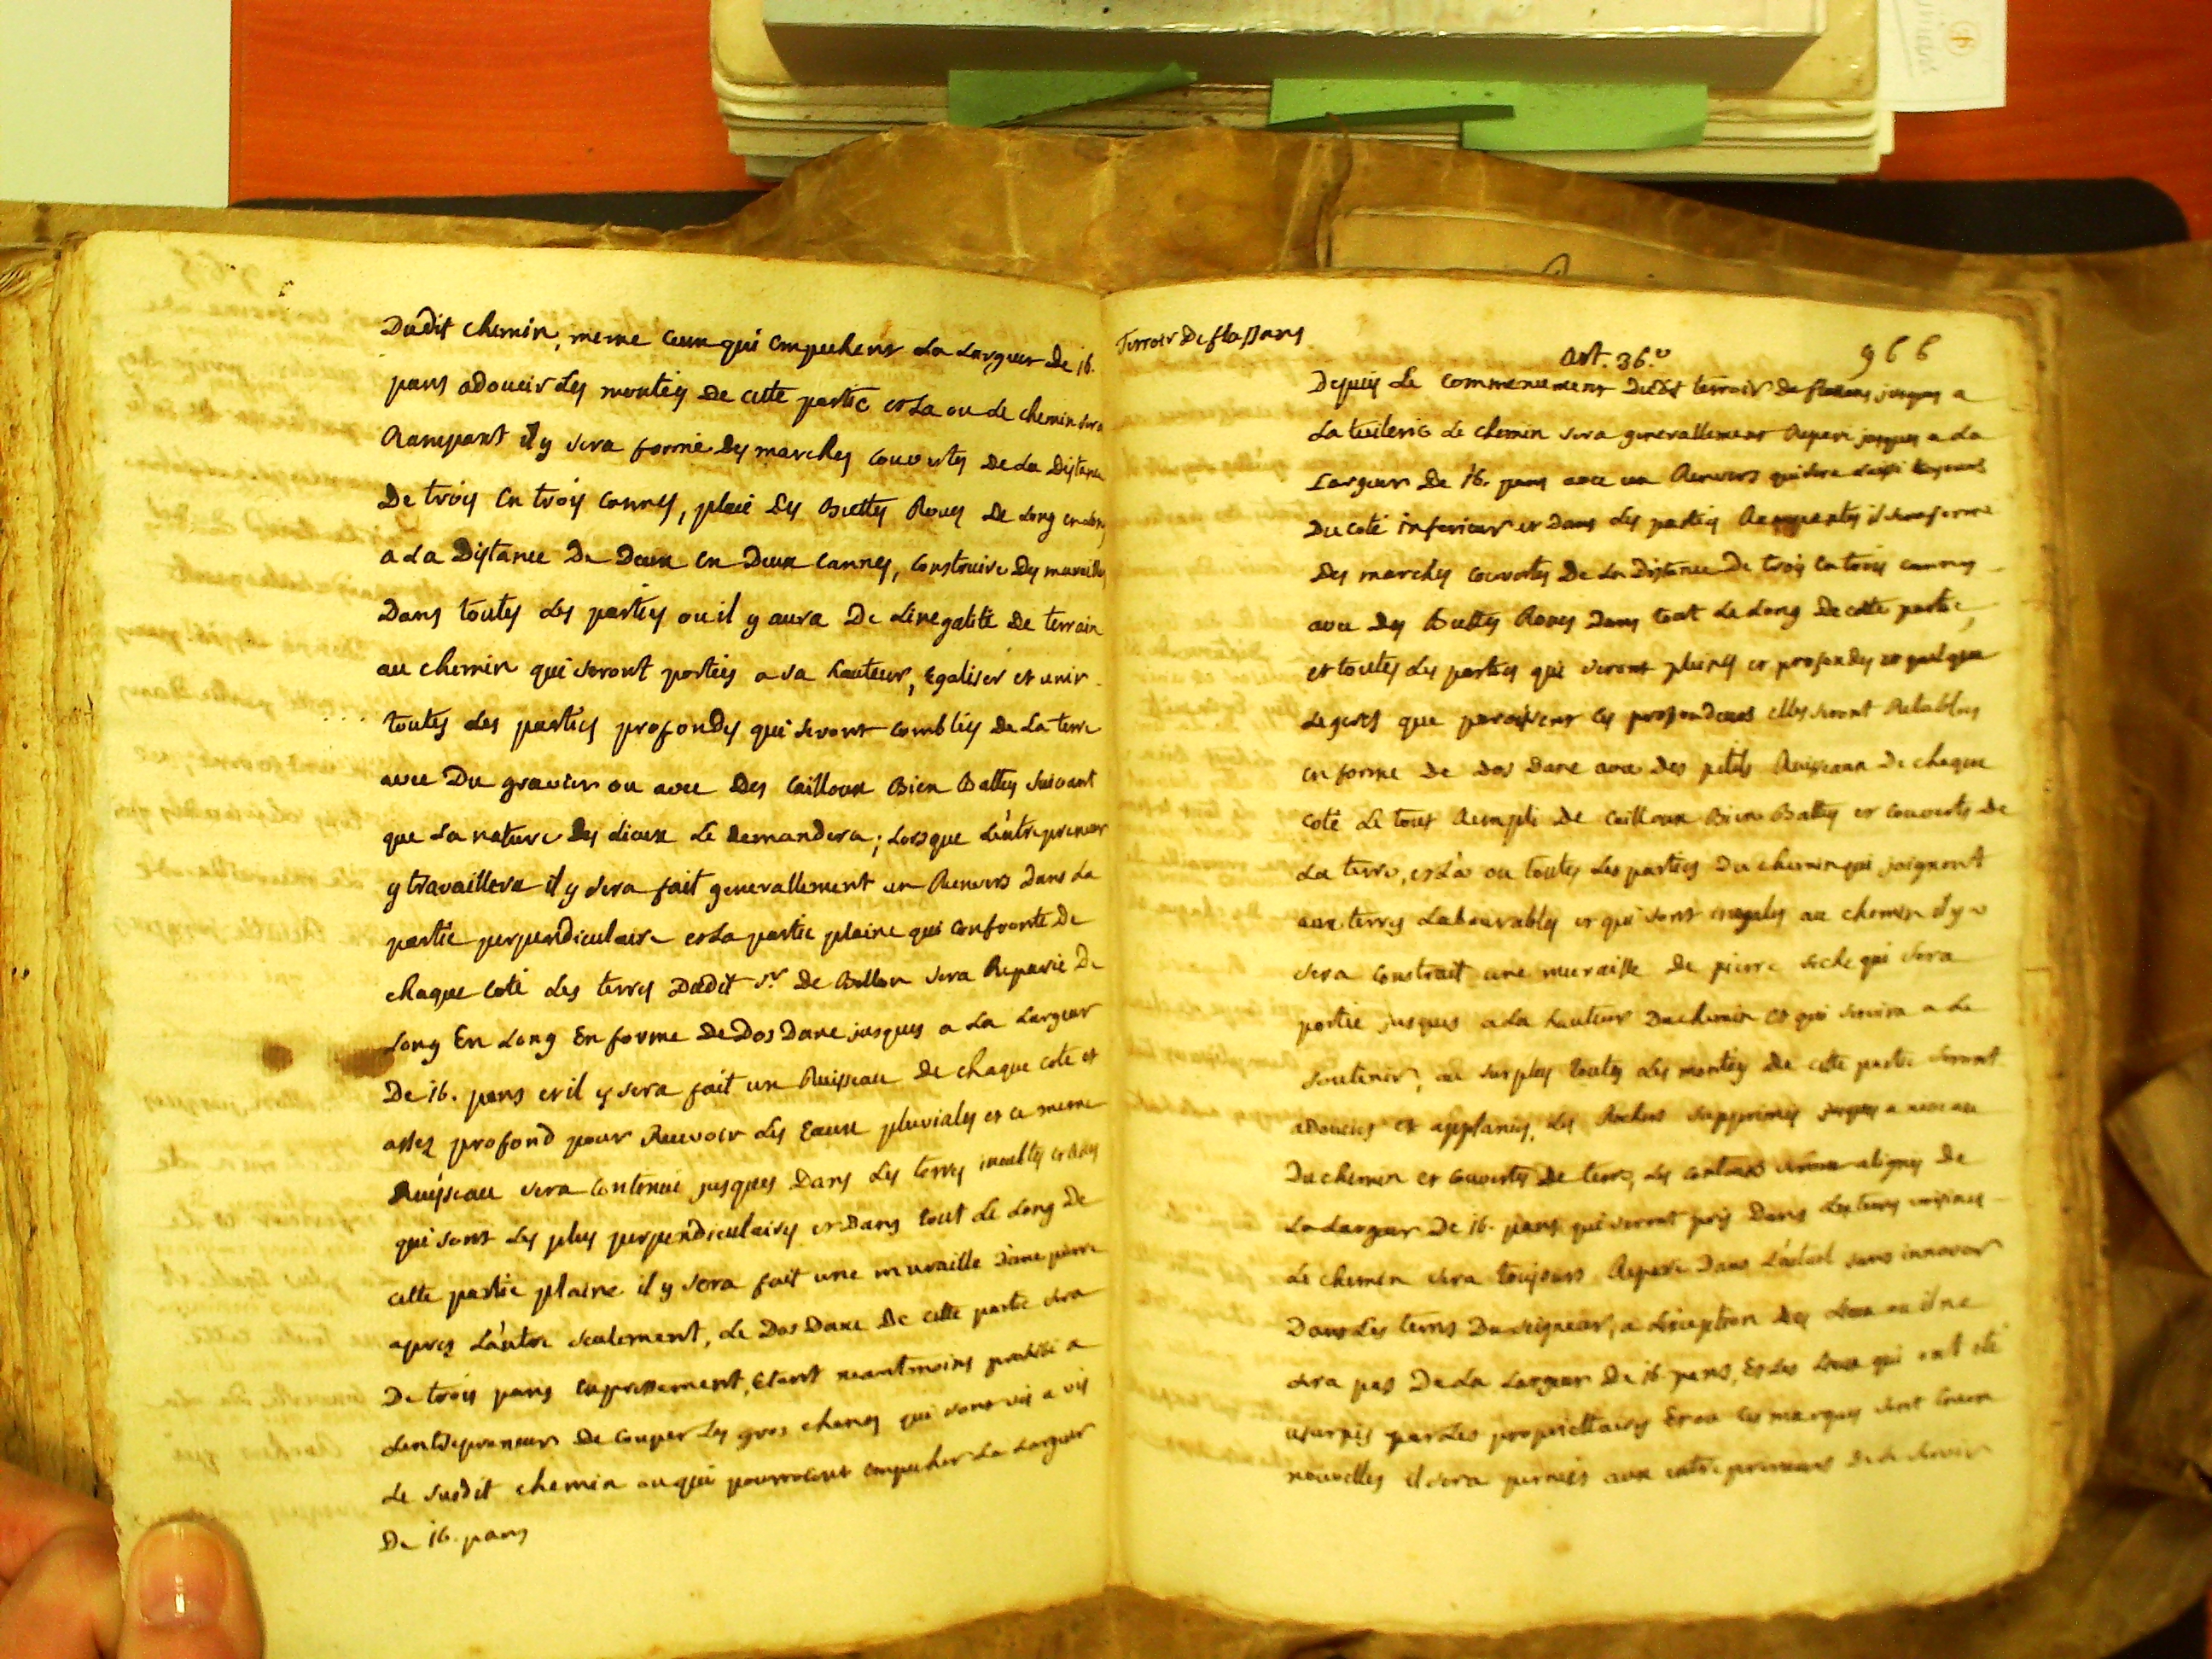 Dudit chemin, meme ceux qui empechent La Largeur de 16.
pans adoucir Les montées De cette partie et La ou Le chemin sera
Rampant il y sera formé Des marches couvertes De La Distance
De trois En trois cannes, placé Des Buttes Roues De Long en Long
a La Distance De Deux En Deux cannes, Construire Des murailles
Dans toutes Les parties ou il y aura De Linegalité De terrain
au chemin qui seront portées a sa hauteur, Egaliser et unir
toutes Les parties profondes qui seront comblées De La terre
avec Du gravier ou avec Des Cailloux Bien Battus suivant
que La nature Des Lieux Le Demandera; Lorsque L'entrepreneur
y travaillera il y sera fait generallement un Renvers Dans La
partie perpendiculaire et La partie plaine qui Confronte De
chaque Coté Les terres Dudit Sr De Bellon sera Reparée De
Long En Long En forme De Dos Dane jusques a La Largeur
De 16. pans et il y sera fait un Ruisseau De chaque coté et
assez profond pour Recevoir Les Eaux pluviales et ce meme
Ruisseau sera Continué jusques Dans Les terres incultes
qui sont Les plus perpendiculaires et Dans tout Le Long De
cette partie plaine il y sera fait une muraille D'une pierre
apres L'autre seulement, Le Dos Dane De cette partie sera
De trois pans Expressement, Etant neantmoins prohibé a
Lentrepreneur De Couper Les gros chenes qui sont vis a vis
Le susdit chemin ou qui pourroient empecher La Largeur
De 16. pans
Terroir De flassans
Art. 36.e
966
Depuis Le Commencement Dudit terroir De flassans jusques a
La tuilerie Le chemin sera generallement Reparé jusques a La
Largeur De 16. pans avec un Renvers qui sera Laissé toujours
Du coté inferieur et Dans Les parties Rampantes il sera formé
Des marches couvertes De La Distance De trois En trois cannes
avec Des Buttes Roues Dans tout Le Long De cette partie,
et toutes Les parties qui seront plaines et profondes et quelque
Legeres que paroissent Ces profondeurs elles seront Retablies
en forme De Dos Dane avec Des petits Ruisseaux De chaque
coté Le tout Rempli De Cailloux Bien Battus et Couverts De
La terre, et La ou toutes Les parties Du chemin qui joignent
aux terres Labourables et qui sont inegales au chemin il y
sera Construit une muraille De pierre seche qui sera
portée jusques a La hauteur Du chemin et qui servira a Le
soutenir, au surplus toutes Les montées De cette partie seront
adoucies et applanies, Les Rochers supprimés jusques a niveau
Du chemin et Couverts De terre, Les contours seront alignés De
La Largeur De 16. pans qui seront pris Dans Les terres voisines
Le chemin sera toujours Reparé Dans L'actuel sans innover
Dans Les terres Du seigneur, a L'exception Des Lieux ou il ne
sera pas De La Largeur De 16. pans, Et Les Lieux qui ont été
usurpés par Les propriettaires Et ou Les marques sont Encore
nouvelles il sera permis aux entrepreneurs De se servir